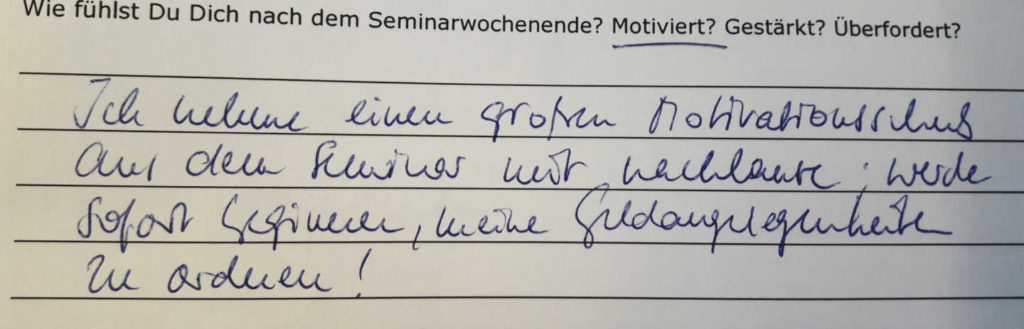 Wie fühlst Du Dich nach dem Seminarwochenende? Motiviert? Gestärkt? Überfordert?
Ich nehme einen großen Motivationsschub
aus dem Seminar mit nachhause; werde
sofort beginnen, meine Geldangelegenheiten
zu ordnen!